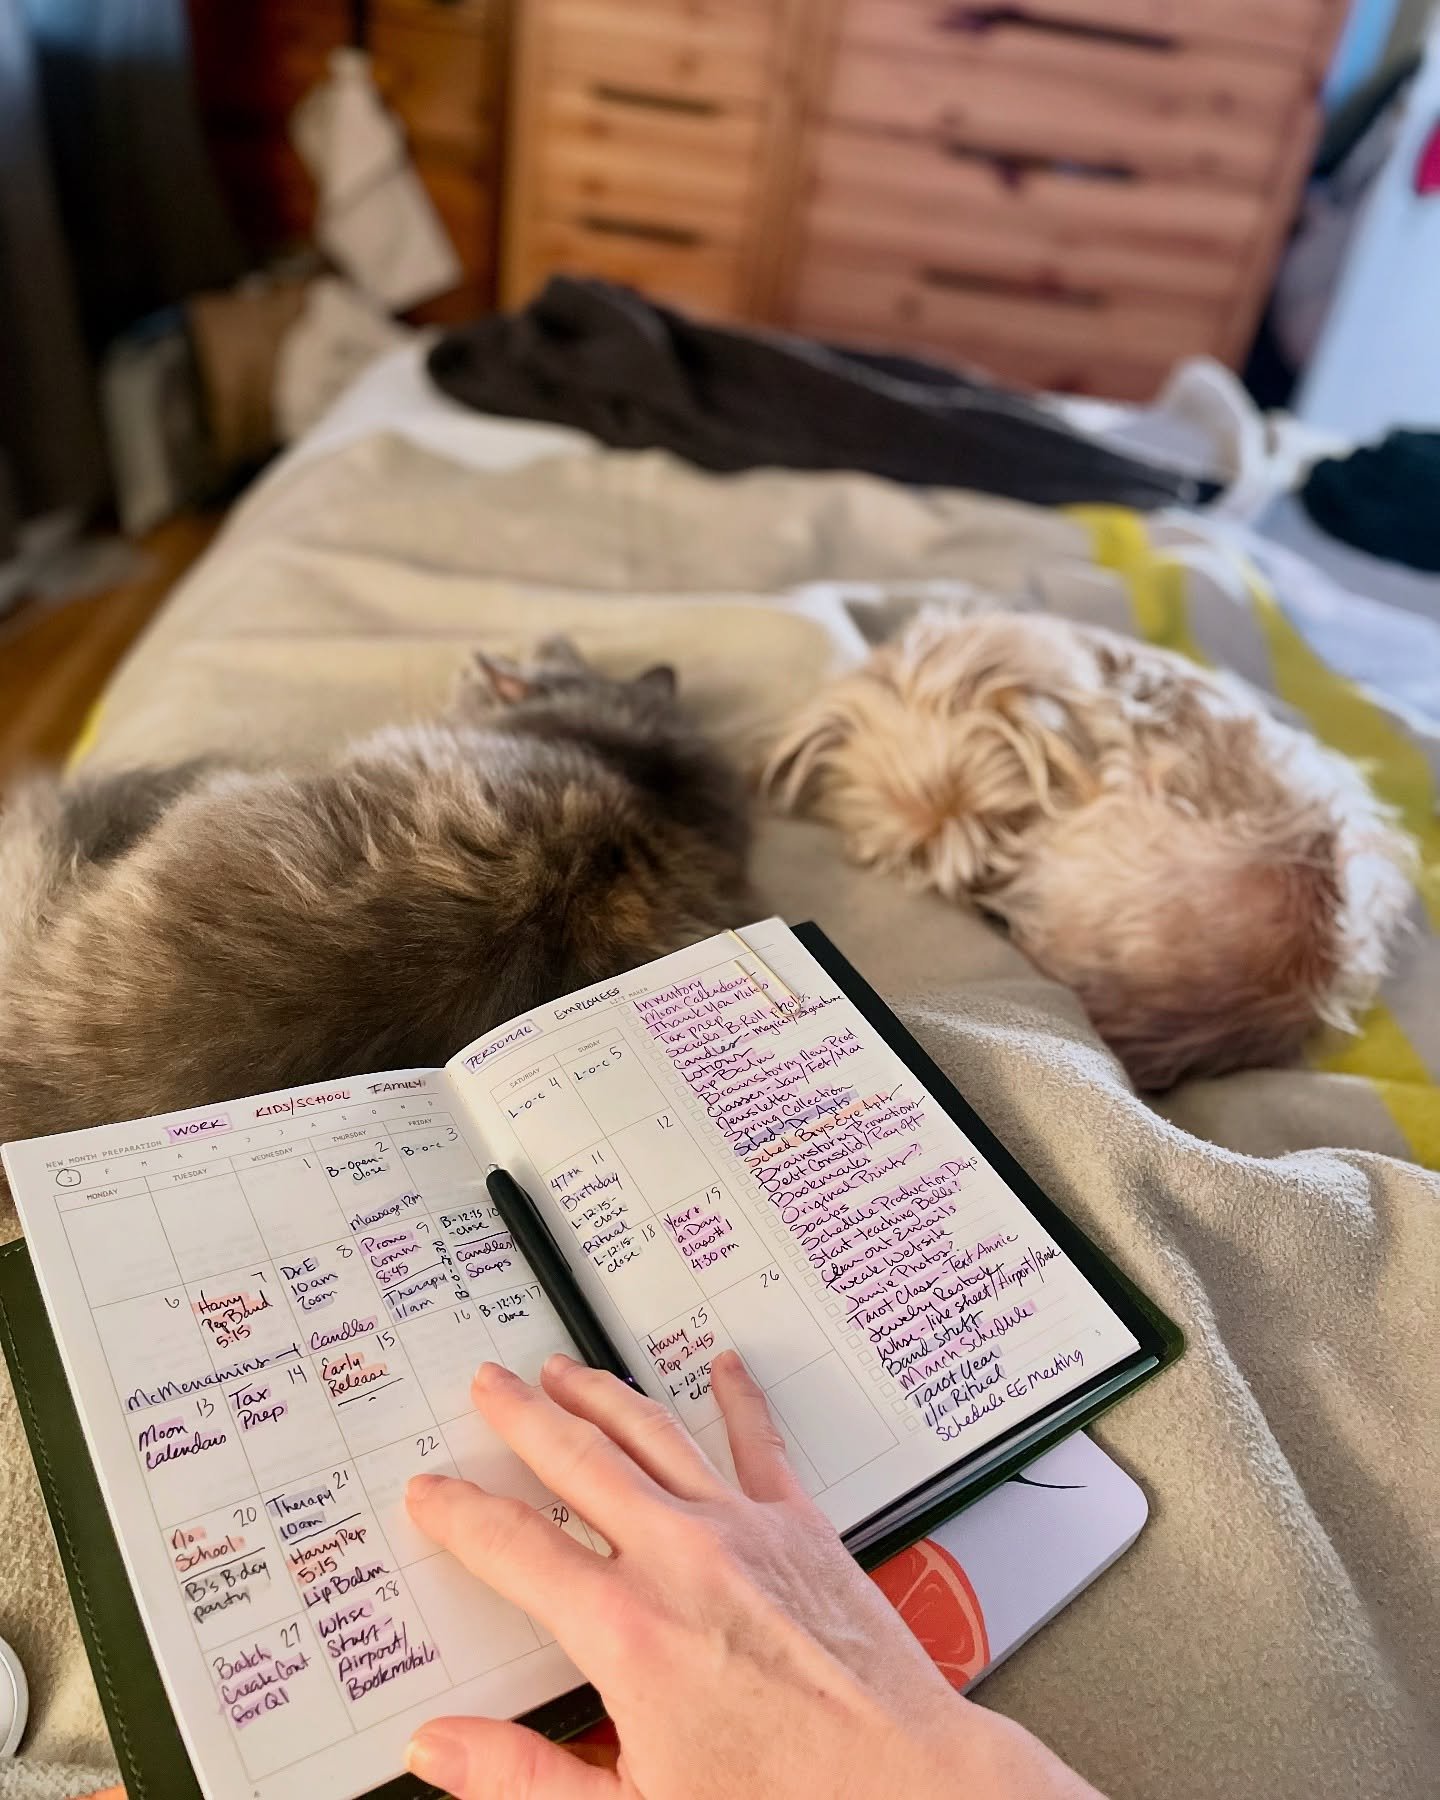 NEW MONTH PREPARATION
WORK
KIDS/SCHOOL
FAMILY
J F M A M J J A S O N D
MONDAY
TUESDAY
WEDNESDAY
THURSDAY
FRIDAY
1
2
B-Open-
close
3
B-o-c
Massage Rm
6
7
Harry
Pep Band
5:15
8
Dr E
10am
Zoom
9
Promo
Comm
8:45
Therapy
11am
10
B-12:15
-close
Candles/
Soaps
McMenamins
Candles
13
Moon
Calendars
14
Tax
Prep
15
Early
Release
16
17
B-12:15-
close
20
No
School
B's B-day
party
21
Therapy
10am
Harry Pep
5:15
Lip Balm
22
27
Batch
Create Cont
for Q1
28
Whse
Stuff -
Airport/
Bookmobile
30
PERSONAL
EMPLOYEES
LIST MAKER
SATURDAY
SUNDAY
4
L-o-c
5
L-o-c
11
47th
Birthday
L-12:15-
close
Ritual
12
18
L-12:15-
close
19
Year +
a Day
Class #1
4:30 pm
25
Harry
Pep 2:45
L-12:15
26
Inventory
Moon Calendars
Thank You Notes
Tax prep
Socials B-Roll Photos
Candles - Magical/Signature
Lotions
Lip Balm
Brainstorm New Prod
Classes - Jan/Feb/Mar
Newsletter
Spring Collection
Sched Dr Apts
Sched Boys Eye Apts
Brainstorm Promotions
Debt Consolid/Pay off
Bookmarks
Original Prints?
Soaps
Schedule Production Days
Start Teaching Belle?
Clean out Emails
Tweak Website
Jamie Photos?
Tarot Class Text Annie
Jewelry Restock
Whse-line sheet/Airport/Book
Band Stuff
March Schedule
Tarot Year
1/11 Ritual
Schedule EE Meeting